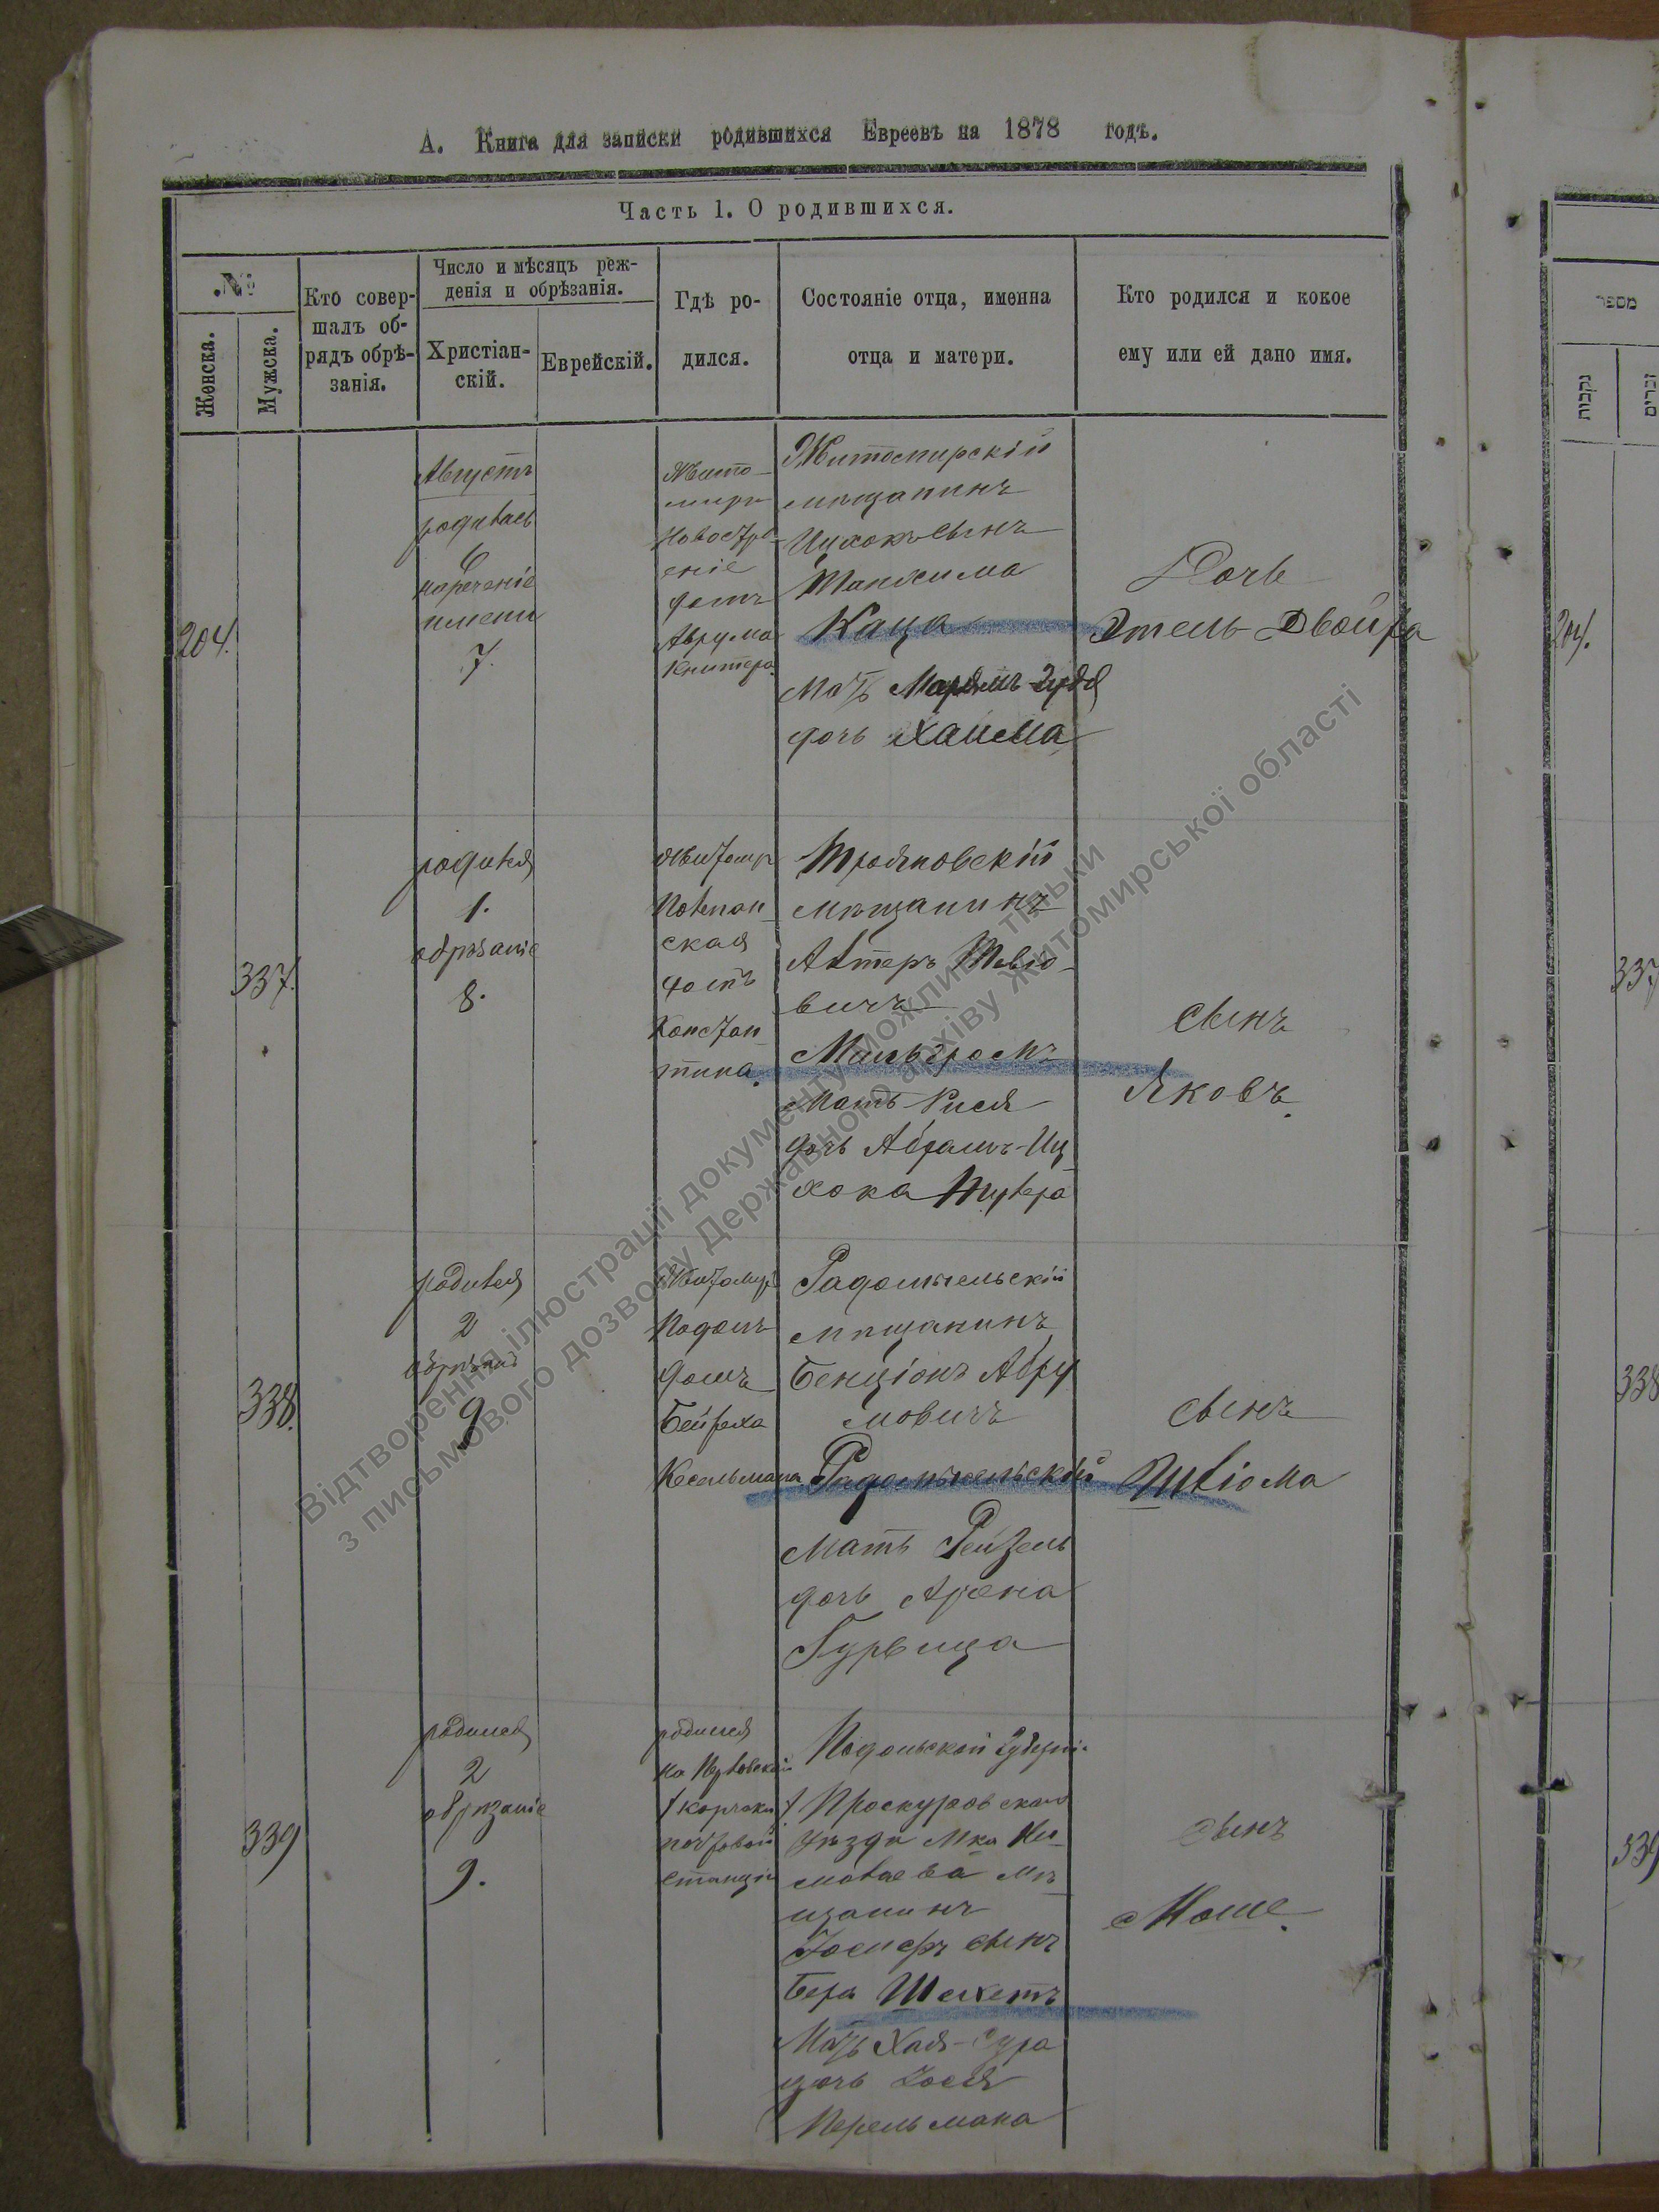 А. Книга для записки родившихся Евреевъ на 1878 годъ.
Часть 1. О родившихся.
№
Женска.
Мужска.
Кто совер-
шалъ об-
рядъ обрѣ-
занія.
Число и мѣсяцъ реж-
денія и обрѣзанія.
Христіан-
скій.
Еврейскій.
Гдѣ ро-
дился.
Состояніе отца, именна
отца и матери.
Кто родился и кокое
ему или ей дано имя.
204.
Августъ
родилась
6
нареченіе
имени
7.
Жито-
миръ
Новостро-
еніе
домъ
Аврума
Житомирскій
мѣщанинъ
Ицхокъ сынъ
Каца
Мать Марямъ
дочь Хаима
Дочь
Этель Двойра
337.
родился
1.
обрѣзаніе
8.
Житомиръ
ская
домъ
Констан-
тина.
Трояновскій
мѣщанинъ
Алтеръ Тевіо-
вичъ
Мильгромъ
Мать Рися
дочь Абрамъ-Иц
хока
сынъ
Яковъ.
338.
родился
2
обрѣзаніе
9
Житомиръ
Подолъ
домъ
Бейреха
Кесельмана
Радомысльскій
мѣщанинъ
Бенціонъ Абру
мовичъ
Радомысльскій
Мать Рейзель
дочь Арона
Гурвица
сынъ
Шліома
339
родился
2
обрѣзаніе
9.
родился
на
почтовой
станціи
Подольской Губерні-
Проскуровскаго
уѣзда Мка Ни-
колаева мѣ-
щанинъ
Іосифъ сынъ
Бера Шехетъ
Мать Хая-Сура
дочь Іося
Перельмана
сынъ
Моше.
מספר
נקבות
זכרים
204.
337
338
339
Відтворення ілюстрації документу можливе тільки
з письмового дозволу Державного архіву Житомирської області